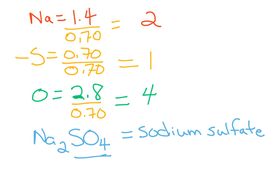 Na = 1.4/0.70 = 2
-S = 0.70/0.70 = 1
O = 2.8/0.70 = 4
Na₂SO₄ = sodium sulfate